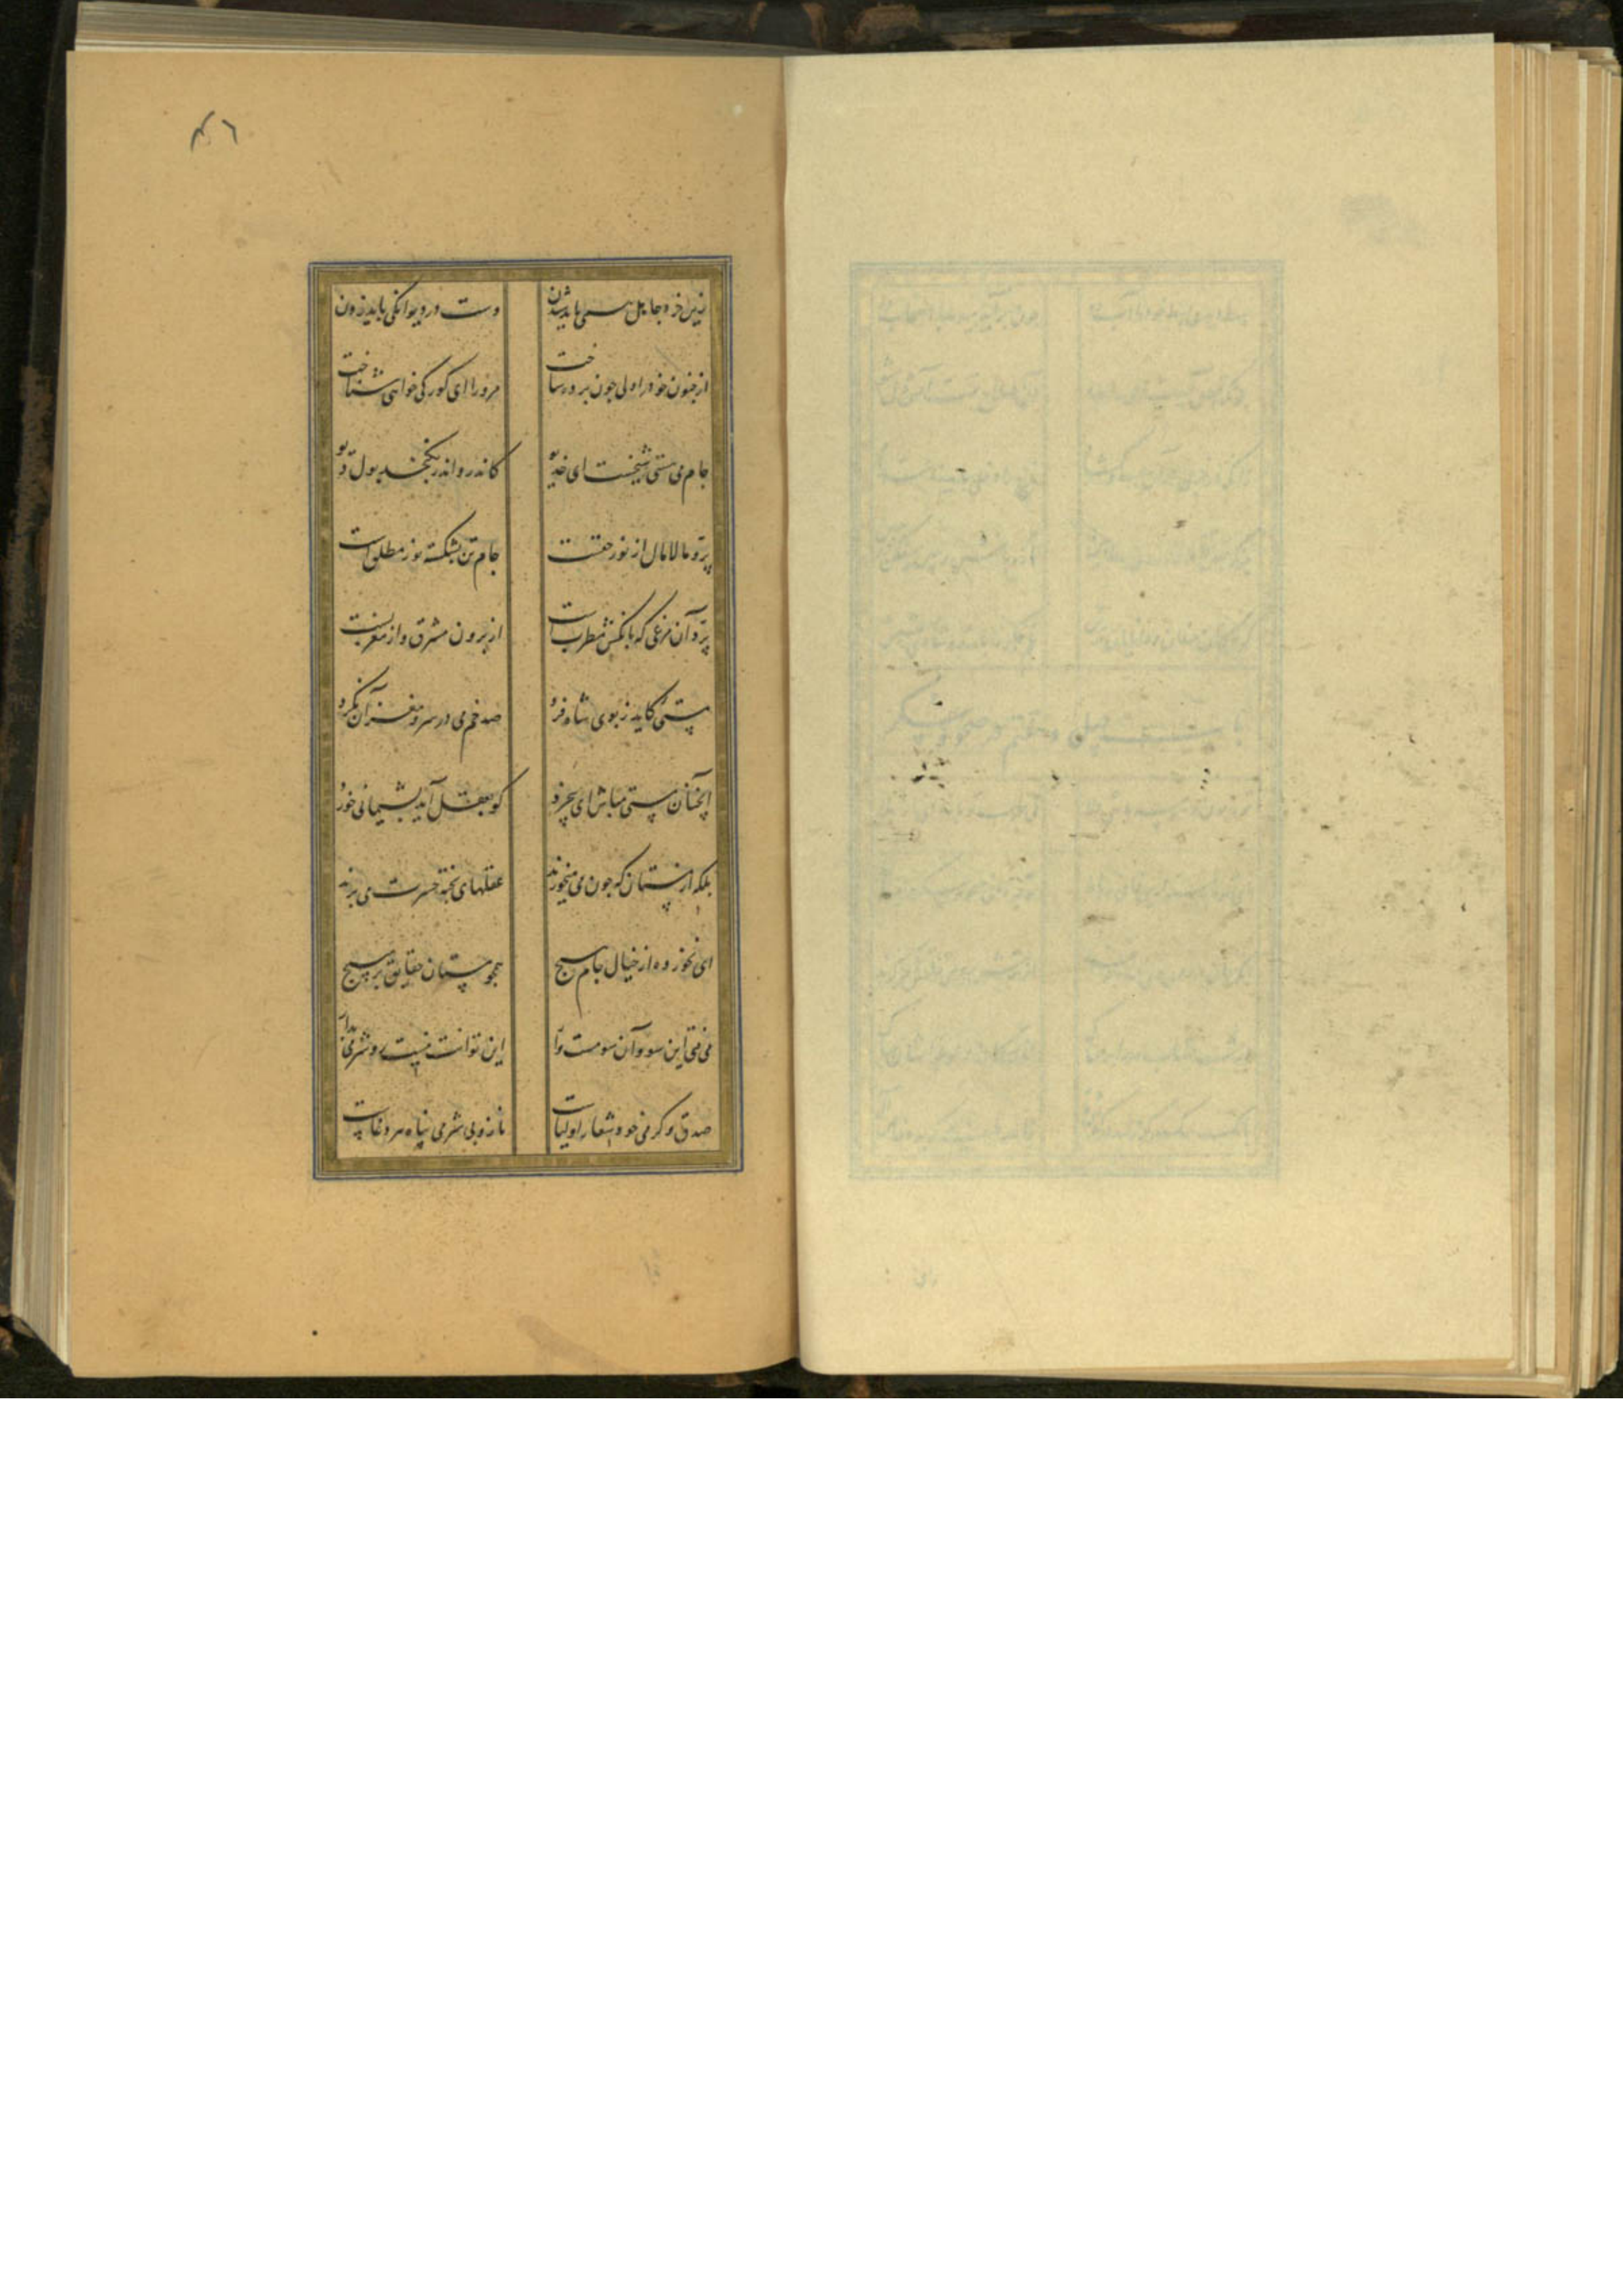 ٤٦
زین خرد جاهل همی باید شدن دست در دیوانگی باید زدن
از جنون خود را ولی چون پرده ساخت مرورا ای کور کی خواهی شناخت
جام می هستی شیخست ای خدیو کاندرو اندر نکنجد بول دیو
پر و مالامال از نور حقست جام تن بشکسته نور مطلق است
پرد آن مرغی که بانکش مطرب است از برون مشرق و از مغربست
مستئ کاید ز بوی شاه فرد صد خم می در سر و مغز آن نکرد
آنچنان مستی مباش ای بیخرد کو بعقل آید پشیمانی خورد
بلکه از مستان که چون می میخورند عقلهای پخته حسرت می برند
ای نخورده از خیال جام هیچ همچو مستان حقایق بر مپیچ
می فتی این سو و آن سو مست وار این توانت نیست رو شرمی بدار
صدق و کرمی خود شعار اولیاست باز و بی شرمی پناه هر دغاست